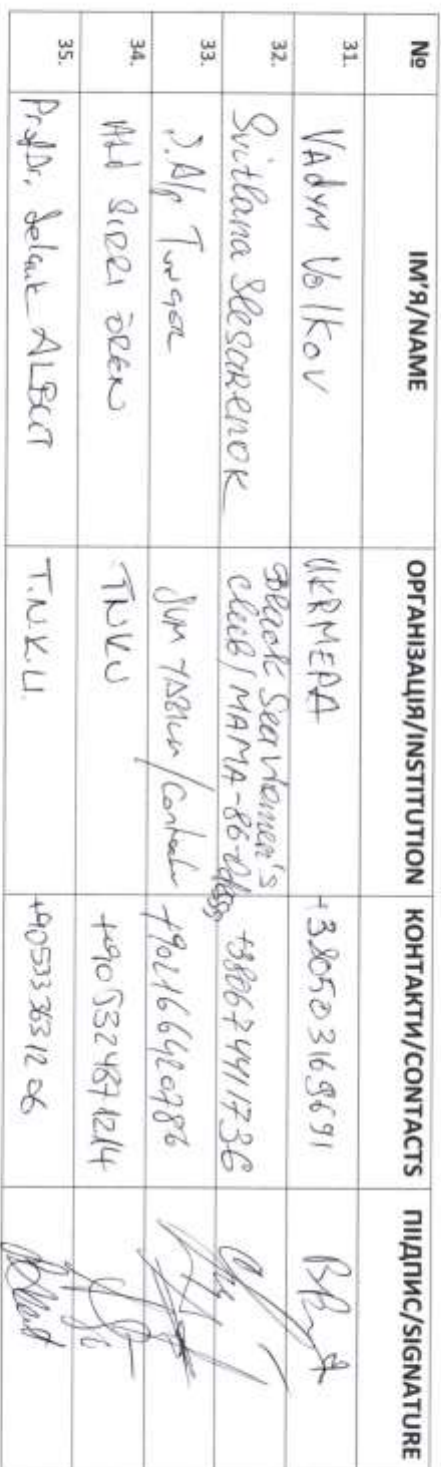 № ІМ'Я/NAME ОРГАНІЗАЦІЯ/INSTITUTION КОНТАКТИ/CONTACTS ПІІДПИС/SIGNATURE
31. VAdyM VolKov UKRMEPA +380503169691
32. Svitlana Slesarenok Black Sea Women's
Club / MAMA-86-Odessa +380674911736
33. D.Alp Tunger +902166420286
34. Ali SIRRI ÖREN TNKU +905324871214
35. Prof.Dr. Selçuk ALBUT T.N.K.U. +905333631206